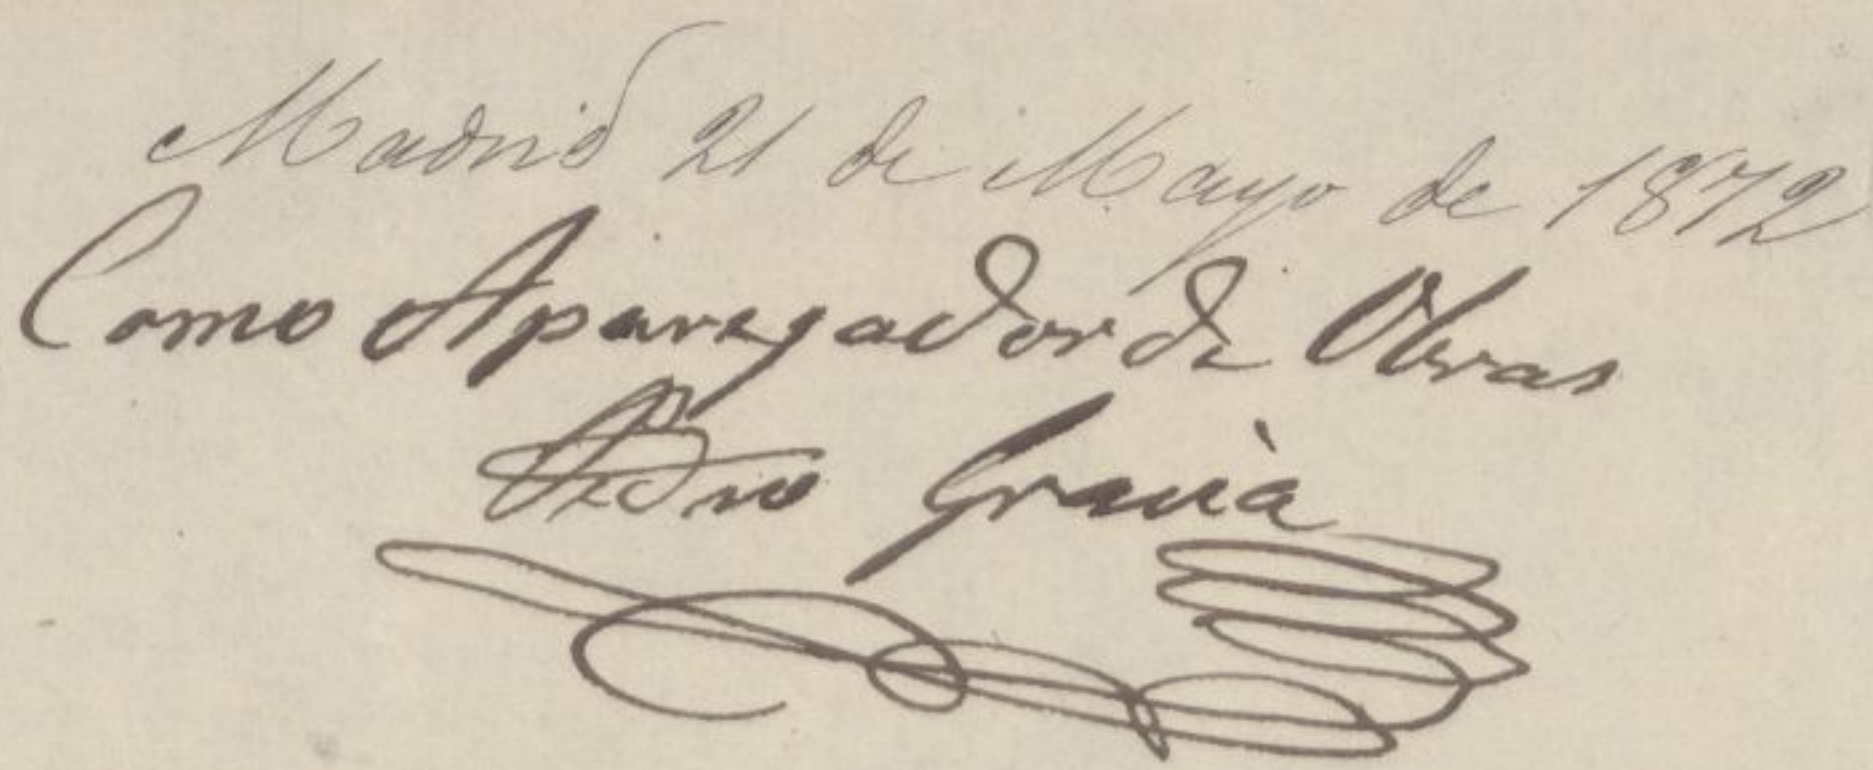 Madrid 21 de Mayo de 1872
Como Aparegador de Obras
Pedro Gravià